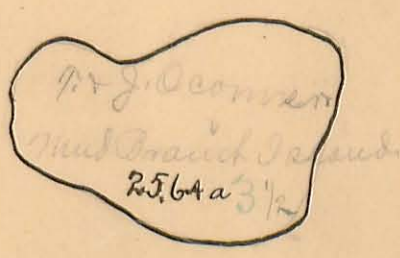 J. Oconner
Mud Branch Island
25.64 a 3 1/2